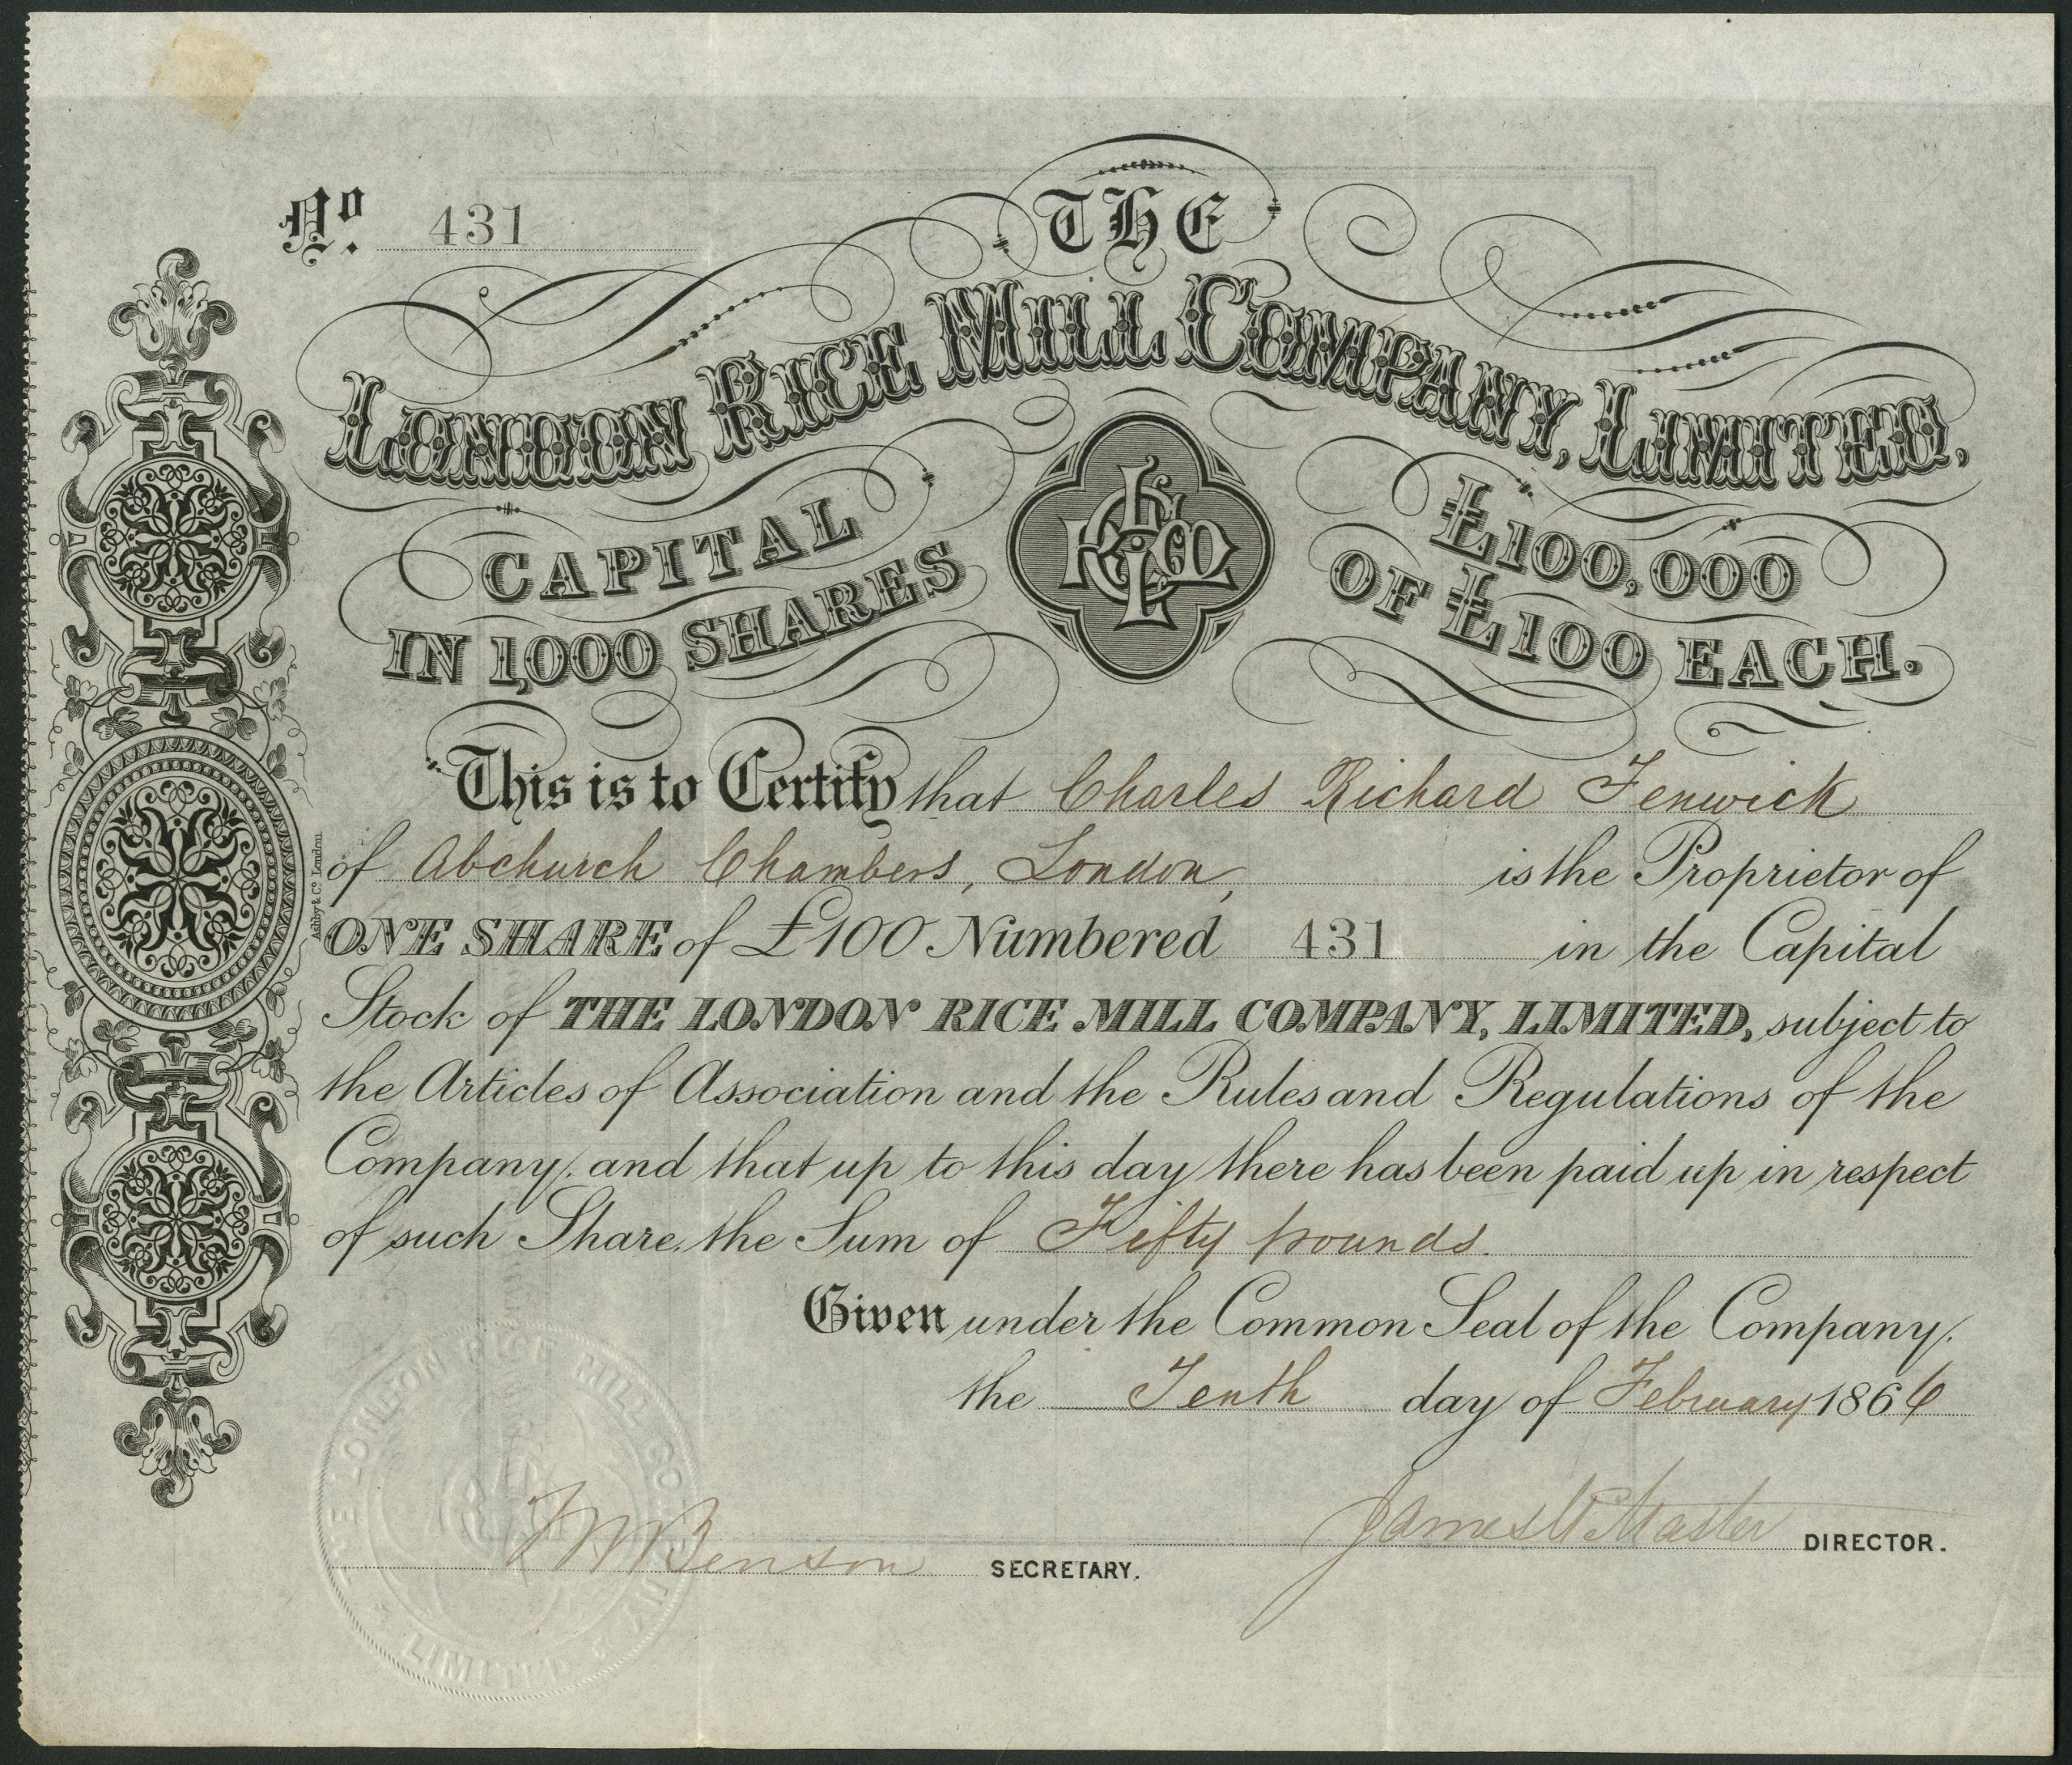 No. 431
THE
LONDON RICE MILL COMPANY, LIMITED,
CAPITAL £100,000
IN 1,000 SHARES OF £100 EACH.
This is to Certify that Charles Richard Fenwick
of Abchurch Chambers, London, is the Proprietor of
ONE SHARE of £100 Numbered 431 in the Capital
Stock of THE LONDON RICE MILL COMPANY, LIMITED, subject to
the Articles of Association and the Rules and Regulations of the
Company, and that up to this day there has been paid up in respect
of such Share, the Sum of Fifty pounds.
Given under the Common Seal of the Company,
the Tenth day of February 1866
James W Master DIRECTOR.
Benson SECRETARY.
Ashby & Co. London
THE LONDON RICE MILL COMPANY
LIMITED